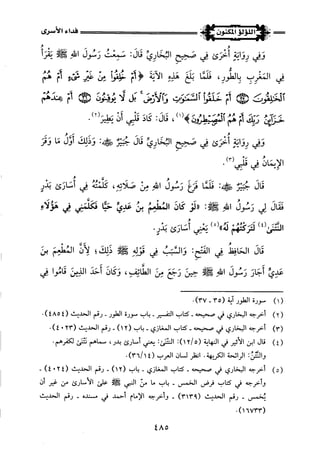 اللؤلؤ المكنون
فداء الأسرى
وَفِي رِوَايَةٍ أُخْرَىٰ فِي صَحِيحِ البُخَارِيِّ قَالَ: سَمِعْتُ رَسُولَ اللهِ ﷺ يَقْرَأُ
فِي المَغْرِبِ بِالطُّورِ، فَلَمَّا بَلَغَ هَذِهِ الآيَةَ ﴿أَمْ خُلِقُوا مِنْ غَيْرِ شَيْءٍ أَمْ هُمُ
الْخَالِقُونَ أَمْ خَلَقُوا السَّمَاوَاتِ وَالْأَرْضَ بَل لَّا يُوقِنُونَ أَمْ عِندَهُمْ
خَزَائِنُ رَبِّكَ أَمْ هُمُ الْمُصَيْطِرُونَ﴾(١)، قَالَ: كَادَ قَلْبِي أَنْ يَطِيرَ(٢).
وَفِي رِوَايَةٍ أُخْرَىٰ فِي صَحِيحِ البُخَارِيِّ قَالَ جُبَيْرٌ ﷺ: وَذَلِكَ أَوَّلُ مَا وَقَرَ
الإِيمَانُ فِي قَلْبِي(٣).
قَالَ جُبَيْرٌ ﷺ: فَلَمَّا فَرَغَ رَسُولُ اللهِ ﷺ مِنْ صَلَاتِهِ، كَلَّمْتُهُ فِي أُسَارَىٰ بَدْرٍ
فَقَالَ لِي رَسُولُ اللهِ ﷺ: «لَوْ كَانَ المُطْعِمُ بنُ عَدِيٍّ حَيًّا فَكَلَّمَنِي فِي هَؤُلَاءِ
النَّتْنَىٰ(٤) لَتَرَكْتُهُمْ لَهُ»(٥) يَعْنِي أُسَارَىٰ بَدْرٍ.
قَالَ الحَافِظُ فِي الفَتْحِ: وَالسَّبَبُ فِي قَوْلِهِ ﷺ ذَلِكَ؛ لِأَنَّ المُطْعِمَ بنَ
عَدِيٍّ أَجَارَ رَسُولَ اللهِ ﷺ حِينَ رَجَعَ مِنَ الطَّائِفِ، وَكَانَ أَحَدَ الذِينَ قَامُوا فِي
(١) سورة الطور آية (٣٥ - ٣٧).
(٢) أخرجه البخاري في صحيحه - كتاب التفسير - باب سورة الطور - رقم الحديث (٤٨٥٤)
(٣) أخرجه البخاري في صحيحه - كتاب المغازي - باب (١٢) - رقم الحديث (٤٠٢٣)
(٤) قال ابن الأثير في النهاية (١٢/٥): النتنىٰ: يعني أسارىٰ بدر، سماهم نتنىٰ لكفرهم.
والنَّتْنُ: الرائحة الكريهة. انظر لسان العرب (٣٦/١٤)
(٥) أخرجه البخاري في صحيحه - كتاب المغازي - باب (١٢) - رقم الحديث (٤٠٢٤) -
وأخرجه في كتاب فرض الخمس - باب ما منّ النبي ﷺ علىٰ الأسارىٰ من غير أن
يُخمس - رقم الحديث (٣١٣٩) - وأخرجه الإمام أحمد في مسنده - رقم الحديث
(١٦٧٣٣).
٤٨٥